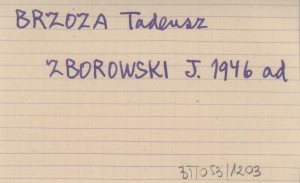 BRZOZA Tadeusz
ZBOROWSKI J. 1946 ad
BT/053/1203